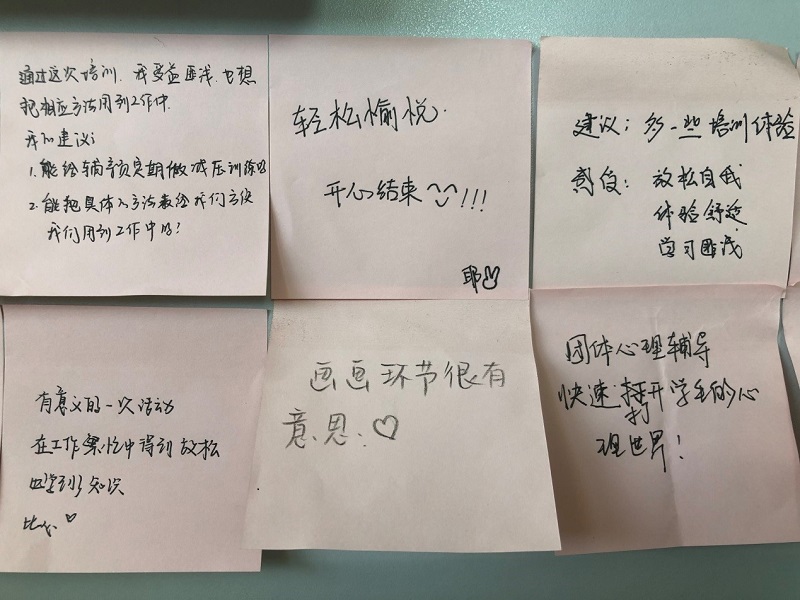 通过这次培训,我受益匪浅,也想
把相应方法用到工作中.
我的建议:
1.能给辅导员定期做减压训练吗
2.能把具体的方法教给我们方便
我们用到工作中吗?
轻松愉悦.
开心结束!!!
耶
建议:多一些培训体验
感受:放松自我
体验舒适
学习匪浅
有意义的一次活动
在工作繁忙中得到放松
也学到了知识
比心
画画环节很有
意思:♡
团体心理辅导
快速打开学生的心
理世界!